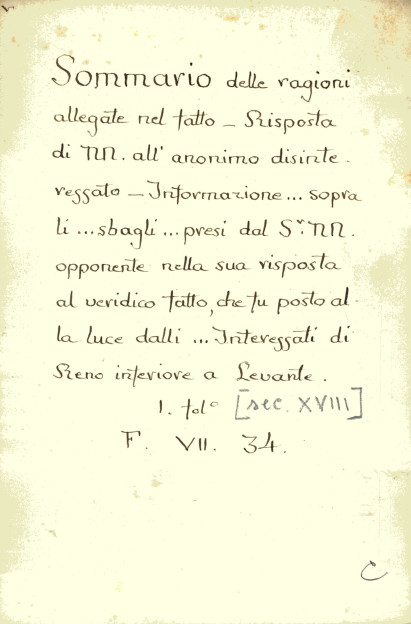 Sommario delle ragioni
allegate nel fatto – Risposta
di NN. all' anonimo disinte-
ressato – Informazione... sopra
li ... sbagli ... presi dal Sr. NN.
opponente nella sua risposta
al veridico fatto, che fu posto al-
la luce dalli ... Interessati di
Reno inferiore a Levante.
1. folo [sec. XVIII]
F. VII. 34.
C